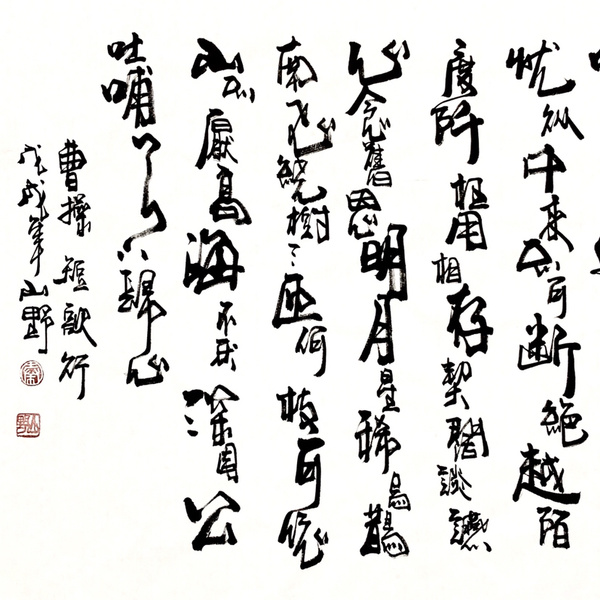 忧从中来不可断絕越陌
度阡枉用相存契闊談讌
心念舊恩明月星稀烏鵲
南飞繞樹三匝何枝可依
山不厭高海不厌深周公
吐哺天下歸心
曹操短歌行
戊戌年山野